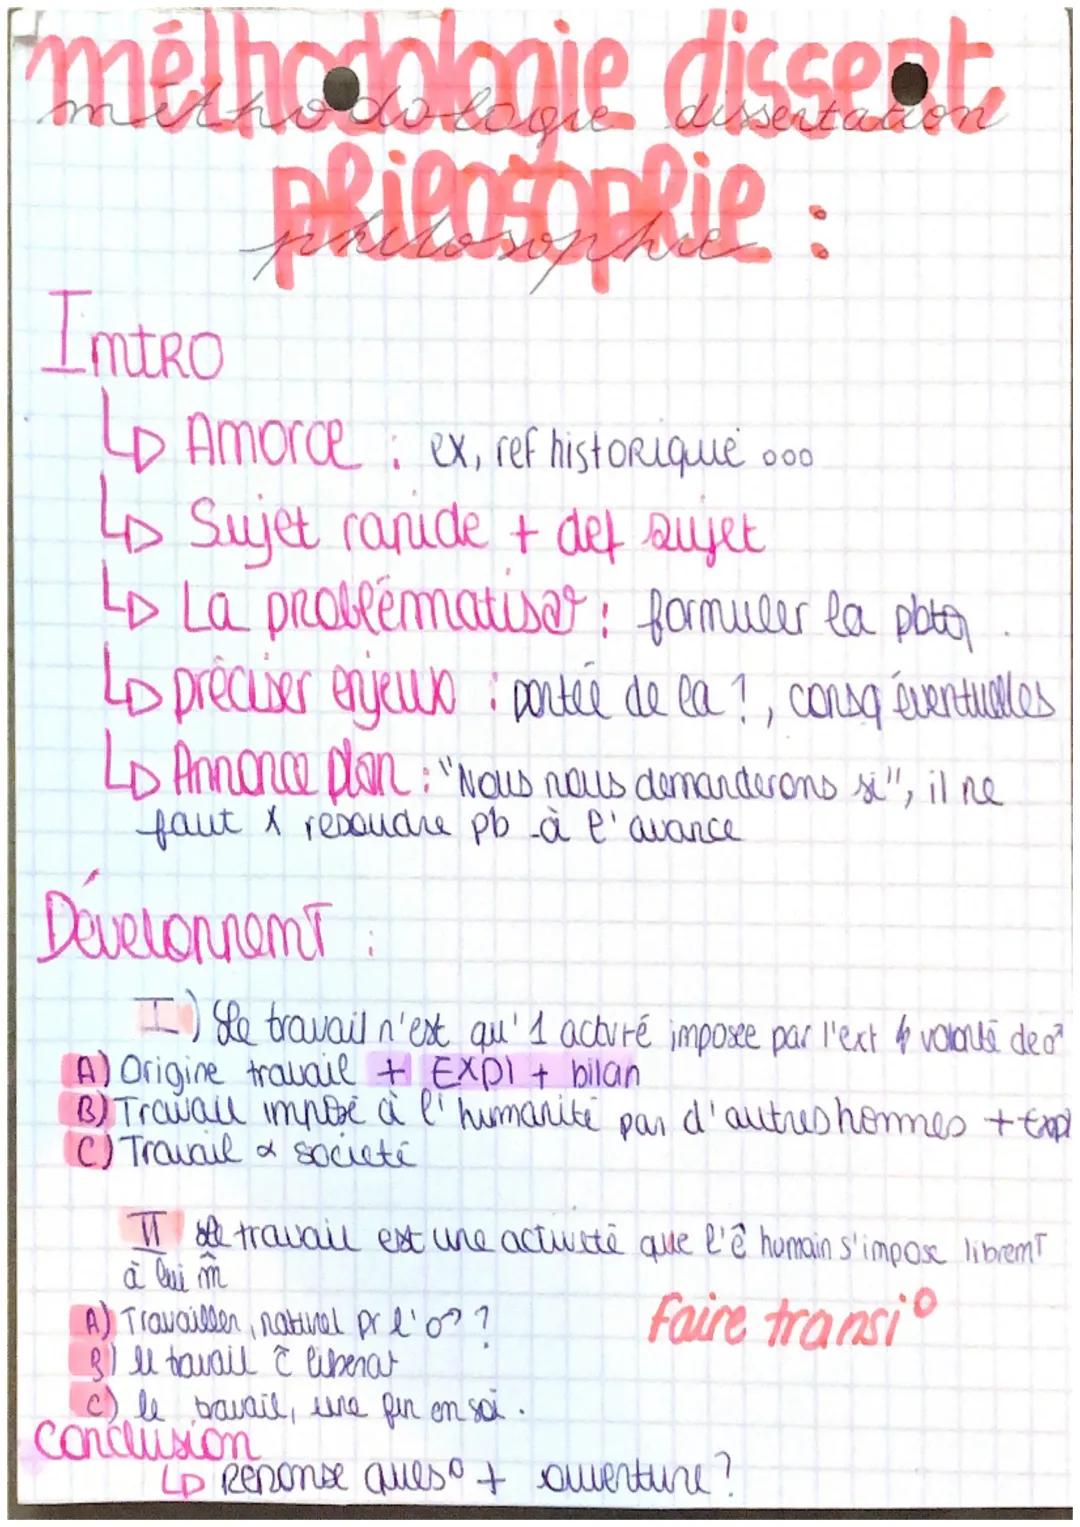 méthodologie dissert
méthodologie dissertation
philosophie :
philosophie
Intro
↳ Amorce : ex, ref historique ...
↳ Sujet rapide + def sujet
↳ La problématiser : formuler la pbtq.
↳ préciser enjeux : portée de la ?, consq éventuelles
↳ Annonce plan : "Nous nous demanderons si", il ne
faut X resoudre pb à l'avance
Développemt :
I) Le travail n'est qu'1 activité imposée par l'ext volonté de
A) Origine travail + Expl + bilan
B) Travail imposé à l'humanité par d'autres hommes + Expl
C) Travail & société
II Le travail est une activité que l'ê humain s'impose libremt
à lui m̂
A) Travailler, naturel pr l'♂ ?
faire transi°
B) le travail c̃ liberat
C) le travail, une fin en soi.
Conclusion
↳ Réponse ques° + ouverture ?